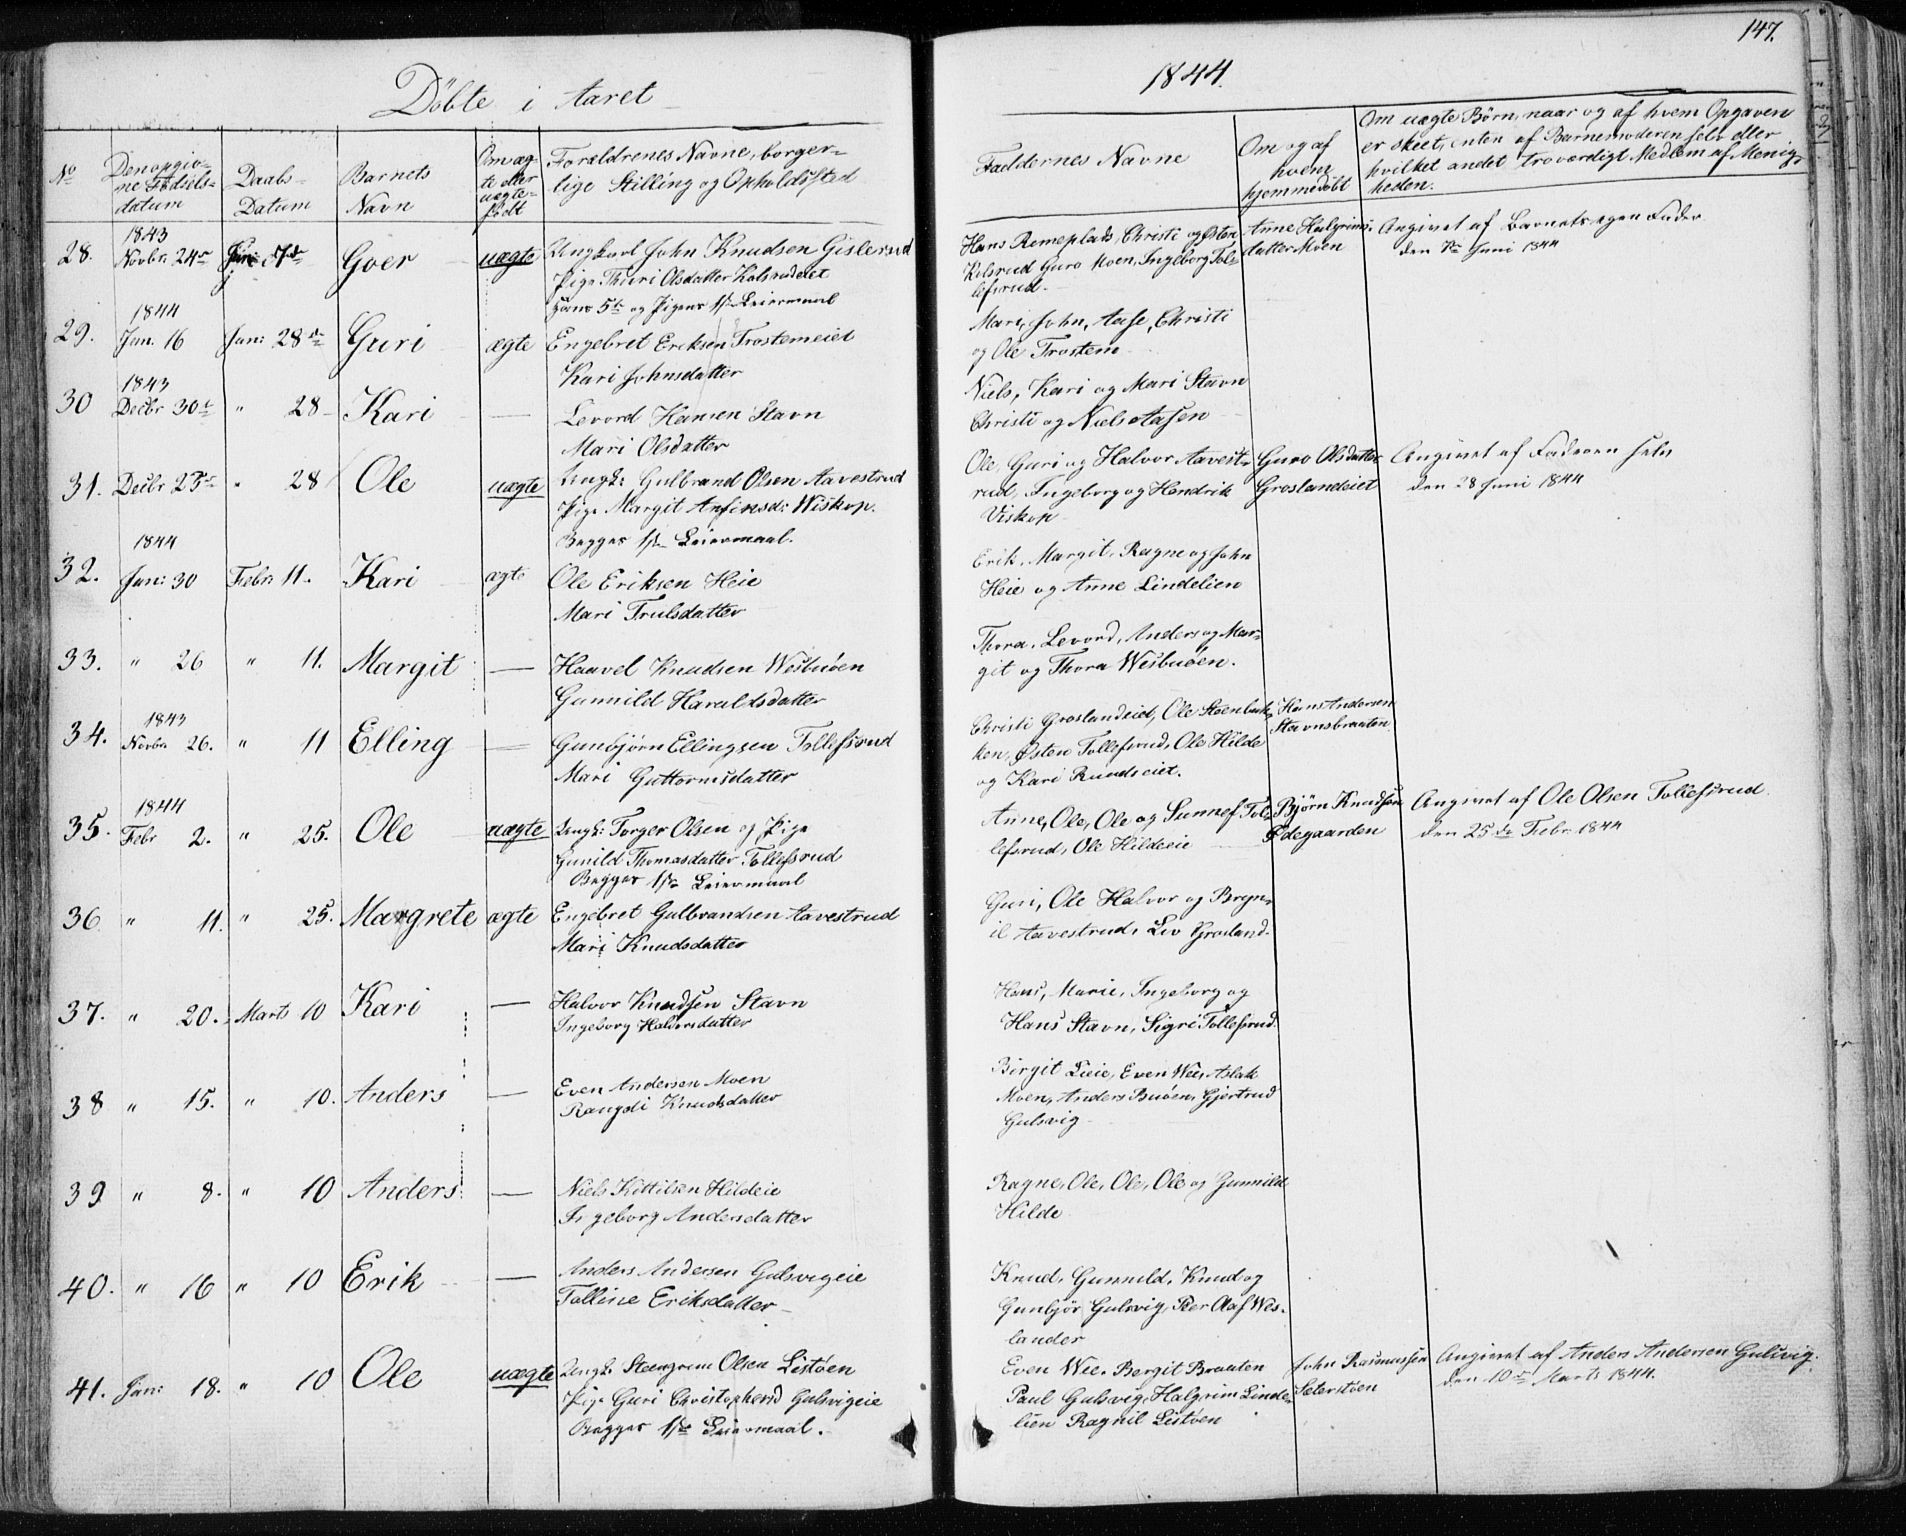 147.
Døbte i Aaret
1844.
No
Den opgiv-
ne Fødsels-
datum
Daabs-
Datum
Barnets
Navn
Om æg-
te eller
uægte-
født
Forældrenes Navne, borger-
lige Stilling og Opholdssted
Faddernes Navne
Om og af
hvem
hjemmedøbt
Om uægte Børn, naar og af hvem Opgaven
er skeet, enten af Barnemoderen selv eller
hvilket andet troværdigt Medlem af Menig-
heden.
1843
28. Novbr 24de Goer uægte Ungkarl John Knudsen Gislerud
Pige Thuri Olsdatter Kolsrudeiet
Hans 5te og Pigens 1ste Leiermaal
Hans Remeplads, Christi og Østen
Kolsrud Guro Moen, Ingeborg Tol-
lefsrud.
Anne Halgrims-
datter Moen
Angivet af Barnets egen Fader
den 7de Juni 1844
1844
29. Jan. 16 Jan: 28de Guri ægte Engebret Eriksen Trostemeiet
Kari Johnsdatter
Mari, John, Aase, Christi
og Ole Trostem
1843
30 Decbr 30te " 28 Kari — Levord Hansen Stavn
Mari Olsdatter
Niels, Kari og Mari Stavn
Christi og Niels Aasen
31. Decbr 23de " 28 Ole uægte Ungk: Gulbrand Olsen Aavestrud
Pige Margit Anfinsd: Wiskop.
Begges 1ste Leiermaal.
Ole, Guri og Halvor Aavest-
rud, Ingeborg og Hendrik
Viskop
Guro Olsdatter
Groslandseiet
Angivet af Faderen selv
den 28 Juni 1844
1844
32. Jan: 30 Febr. 11. Kari ægte Ole Eriksen Heie
Mari Trulsdatter
Erik, Margit, Ragne og John
Heie og Anne Lindelien
33. " 26 " 11. Margit — Haavel Knudsen Wesbuøen
Gunnild Haraldsdatter
Thora, Levord, Anders og Mar-
git og Thora Wesbuøen.
1843
34. Novbr. 26. " 11 Elling — Gunbjørn Ellingsen Tollefsrud
Mari Guttormsdatter
Christi Groslandeiet, Ole Steenbak-
ken, Østen Tollefsrud, Ole Hilde
og Kari Rundseiet.
Hans Andersen
Stavnsbraaten
1844
35. Febr 2. " 25. Ole uægte Ungk: Torger Olsen og Pige
Gunild Thomasdatter Tollefsrud
Begges 1ste Leiermaal
Anne, Ole, Ole og Sunnef Tol-
lefsrud, Ole Hildeeie
Bjørn Knudsen
Ødegaarden
Angivet af Ole Olsen Tollefsrud.
den 25de Febr. 1844
36 " 11. " 25. Margrete ægte Engebret Gulbrandsen Aavestrud
Mari Knudsdatter
Guri, Ole Halvor og Bryn-
il Aavestrud, Liv Grosland.
37. " 20. Marts 10 Kari — Halvor Knudsen Stavn
Ingeborg Halvorsdatter
Hans, Marie, Ingeborg og
Hans Stavn, Sigri Tollefsrud.
38 " 15. " 10. Anders — Even Andersen Moen
Rangdi Knudsdatter
Birgit Lieie, Even Wee, Aslak
Moen, Anders Buøen, Gjertrud
Gulsvig
39 " 8. " 10 Anders — Niels Kittilsen Hildeie
Ingeborg Andersdatter
Ragne, Ole, Ole, Ole og Gunnild
Hilde
40. " 16 " 10 Erik — Anders Andersen Gulsvigeie
Tolline Eriksdatter
Knud, Gunnild, Knud og
Gunbjør Gulsvig, Peer Olaf Wes-
lander
41. Jan: 18. " 10 Ole uægte Ungk: Steengrim Olsen Listøen
Pige Guri Christophersd Gulsvigeie
Begges 1ste Leiermaal.
Even Wee, Bergit Braaten
Paul Gulsvig, Halgrim Linde-
lien Ragnil Listøen
John Rasmussen
Seterstøen
Angivet af Anders Andersen Gulsvig.
den 10de Marts 1844.